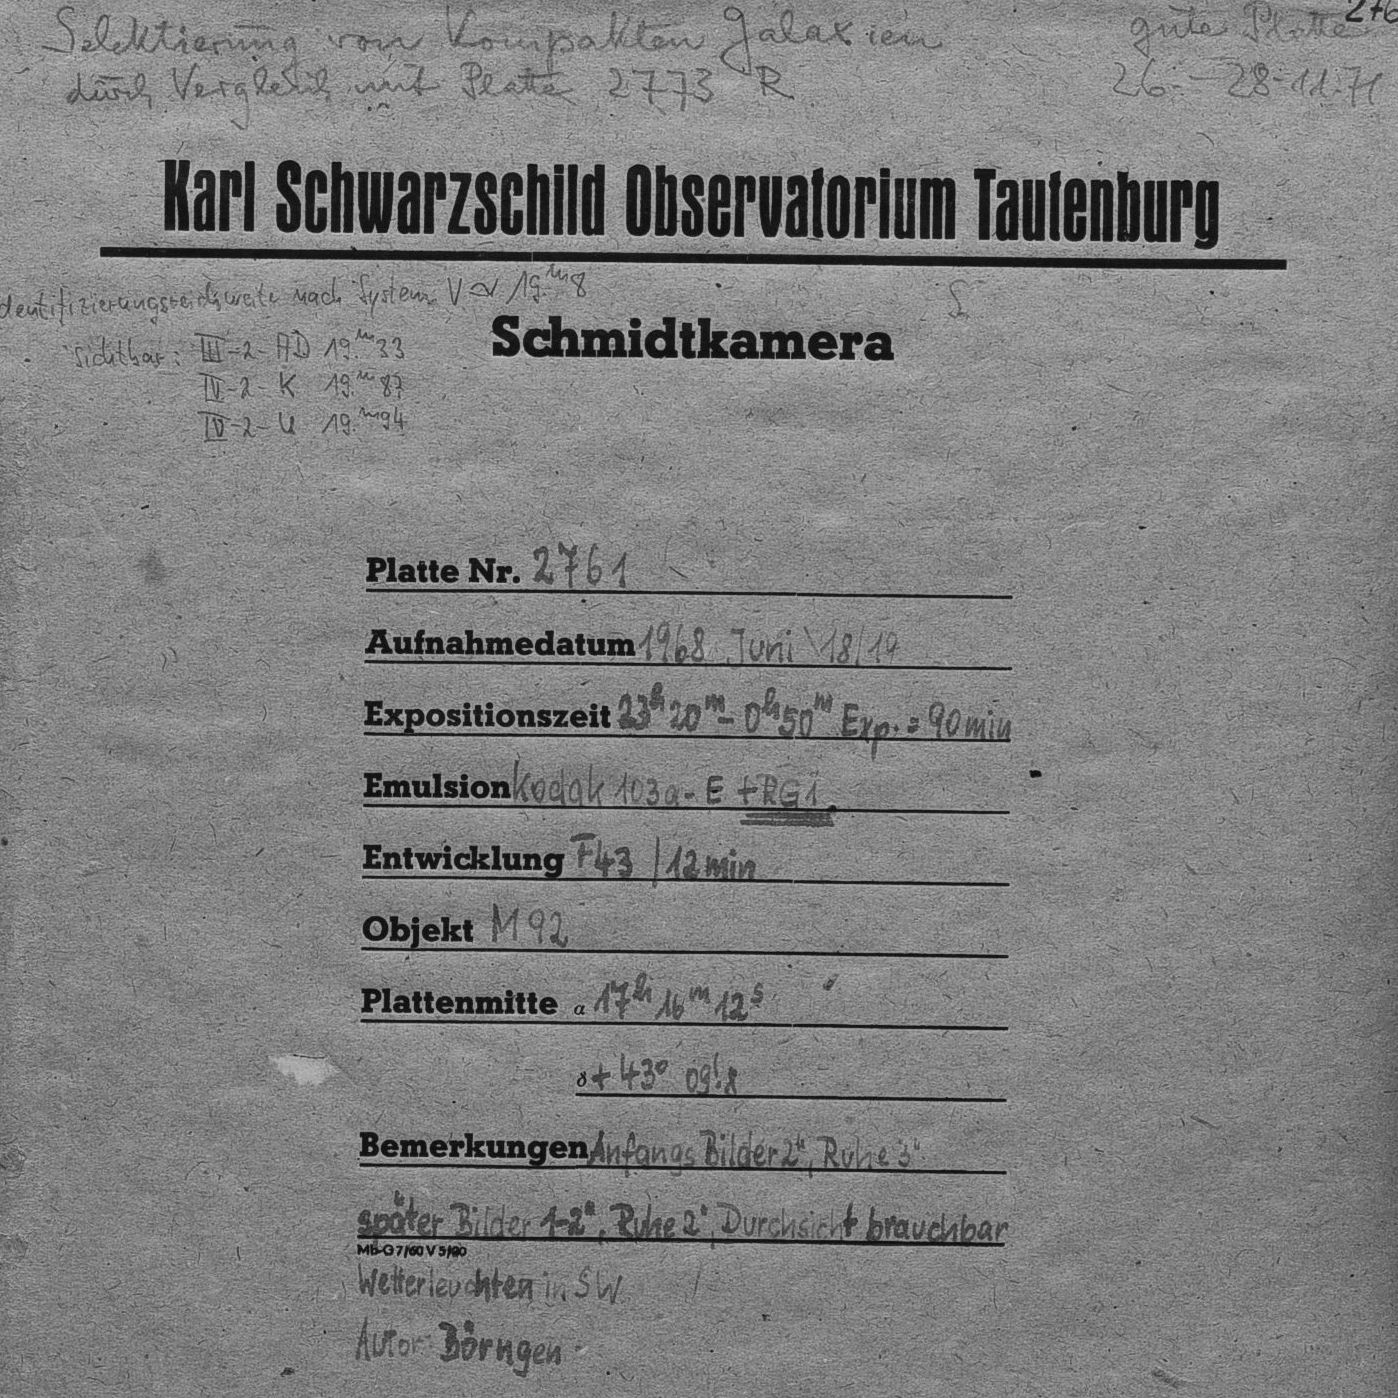 Selektierung von Kompakten Galaxien gute Platte 276
durch Vergleich mit Platte 2773 R 26.-28-11.71
Karl Schwarzschild Observatorium Tautenburg
dentifizierungsreichweite nach System V ≈ 19.ᵐ8
Schmidtkamera
sichtbar: III-2-AD 19.ᵐ33
IV-2-K 19.ᵐ87
IV-2-U 19.ᵐ94
Platte Nr. 2761
Aufnahmedatum 1968 Juni 18/19
Expositionszeit 23ʰ20ᵐ - 0ʰ50ᵐ Exp. = 90min
Emulsion Kodak 103a-E +RG1
Entwicklung F43 / 12 min
Objekt M 92
Plattenmitte α 17ʰ 16ᵐ 12ˢ
δ + 43° 09!8
Bemerkungen Anfangs Bilder 2", Ruhe 3"
später Bilder 1-2", Ruhe 2", Durchsicht brauchbar
Mb-G 7/60 V 5/90
Wetterleuchten in SW
Autor: Börngen